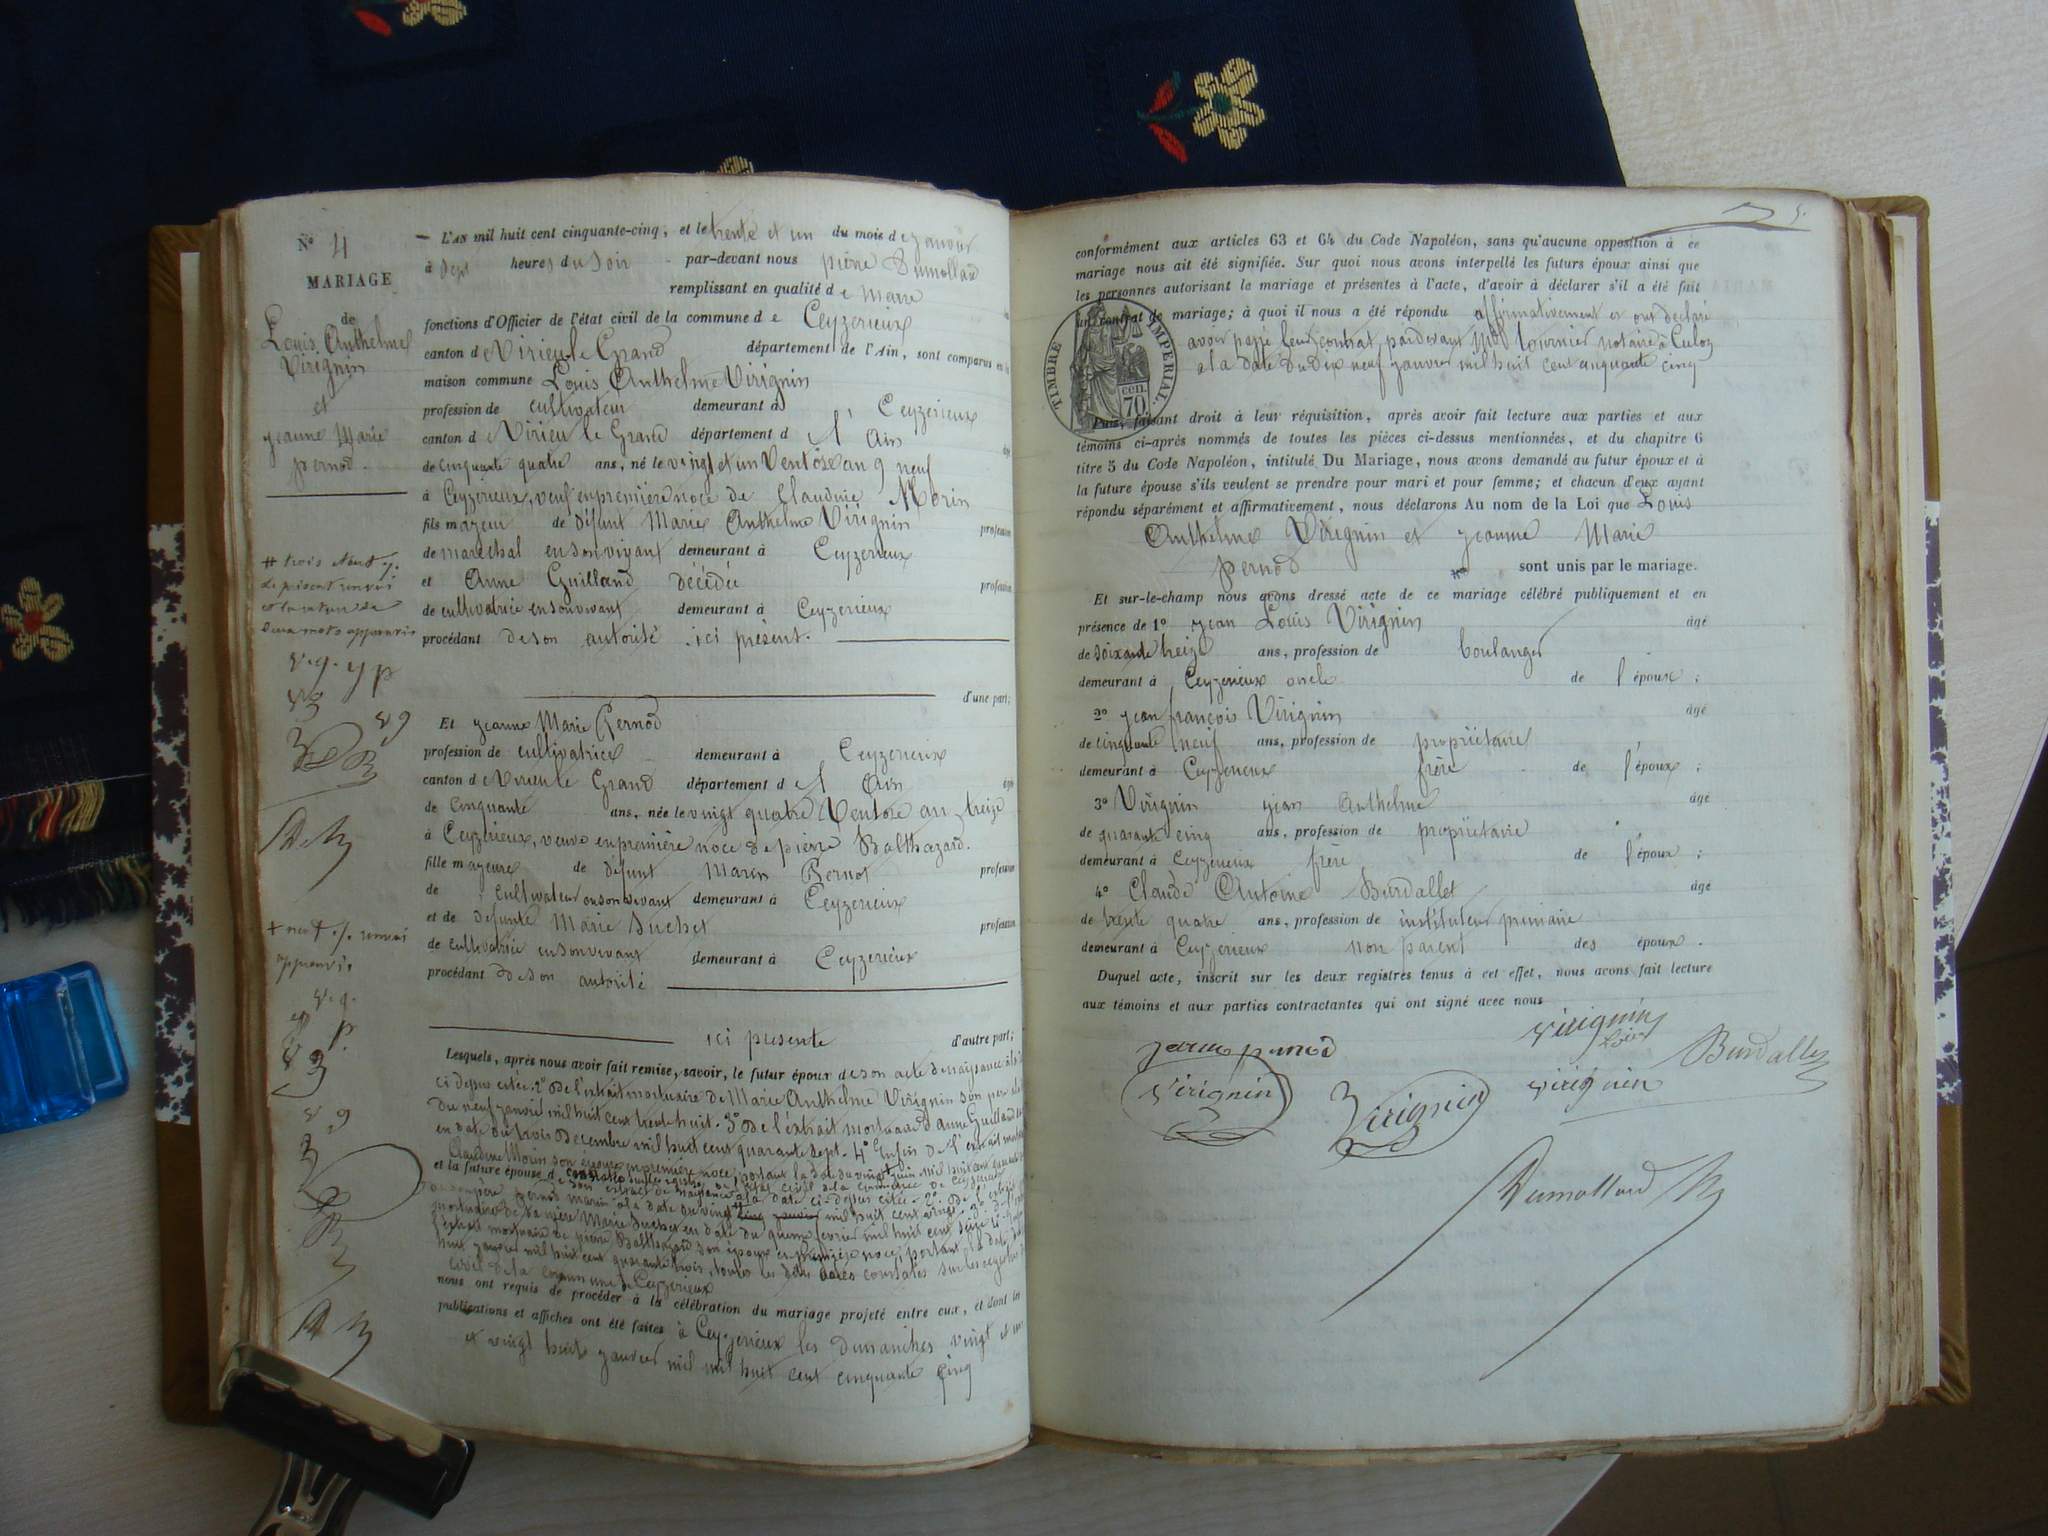 N° 4
MARIAGE
de
Louis Anthelme
Virignin
et
jeanne Marie
pernod.
L'an mil huit cent cinquante-cinq, et le trente et un du mois de janvier
à sept heures du soir par-devant nous pierre Dumollard
remplissant en qualité de Maire
fonctions d'Officier de l'état civil de la commune de Ceyzerieux
canton de Virieu-le-Grand département de l'Ain, sont comparus en la
maison commune Louis Anthelme Virignin
profession de cultivateur demeurant à Ceyzerieux
canton d Virieu le Grand département d l'Ain âgé
de cinquante quatre ans, né le vingt et un Ventôse an 9 neuf
à Ceyzerieux, veuf en première noce de Claudine Morin
fils mageur de défunt Marie Anthelme Virignin profession
de marechal en son vivant demeurant à Ceyzerieux
et Anne Guilland décédée profession
de cultivatrice en son vivant demeurant à Ceyzerieux
procédant de son autorité ici présent.
d'une part;
# trois
le présent renvoi
deux mots approuvés
v. g. y p
Et jeanne Marie Pernod
profession de cultivatrice demeurant à Ceyzerieux
canton de Virieu le Grand département d l'Ain âgée
de cinquante ans, née le vingt quatre Ventose an treize
à Ceyzerieux, veuve en première noce de pierre Balthazard.
fille mageure de défunt Marin Pernod profession
de cultivateur en son vivant demeurant à Ceyzerieux
et de defunte Marie Suchet profession
de cultivatrice en son vivant demeurant à Ceyzerieux
procédant de son autorité
ici presente d'autre part;
renvoi
approuvé.
Lesquels, après nous avoir fait remise, savoir, le futur époux de son acte de naissance à la
ci dessus citée. 2° De l'extrait mortuaire de Marie Anthelme Virignin son père
du neuf janvier mil huit cent trente huit. 3° De l'extrait mortuaire d'Anne Guilland
en date du trois Decembre mil huit cent quarante sept. 4° Enfin de l'extrait
Claudine Morin son épouse en première noce, portant la date du vingt juin mil huit cent
et la future épouse de son extrait de naissance à la date ci-dessus citée. 2° De l'extrait
de son père pernod marin a la date du vingt cinq janvier mil huit cent vingt. 3° De l'extrait
mortuaire de sa mère Marie Suchet en date du quinze fevrier mil huit cent seize
l'extrait mortuaire de pierre Balthazard son époux en première noce, portant la date
huit janvier mil huit cent quarante trois, toutes les dites dates constatées sur les registres
civil de la commune de Ceyzerieux
nous ont requis de procéder à la célébration du mariage projeté entre eux, et dont les
publications et affiches ont été faites à Ceyzerieux les dimanches vingt et un
et vingt huit janvier mil huit cent cinquante cinq
5.
conformément aux articles 63 et 64 du Code Napoléon, sans qu'aucune opposition à ce
mariage nous ait été signifiée. Sur quoi nous avons interpellé les futurs époux ainsi que
les personnes autorisant le mariage et présentes à l'acte, d'avoir à déclarer s'il a été fait
un contrat de mariage; à quoi il nous a été répondu affirmativement et ont declaré
avoir passé leur contrat pardevant Me tournier notaire à Culoz
a la date du dix neuf janvier mil huit cent cinquante cinq
TIMBRE IMPERIAL.
70 cen.
Puis, faisant droit à leur réquisition, après avoir fait lecture aux parties et aux
témoins ci-après nommés de toutes les pièces ci-dessus mentionnées, et du chapitre 6
titre 5 du Code Napoléon, intitulé Du Mariage, nous avons demandé au futur époux et à
la future épouse s'ils veulent se prendre pour mari et pour femme; et chacun d'eux ayant
répondu séparément et affirmativement, nous déclarons Au nom de la Loi que Louis
Anthelme Virignin et jeanne Marie
pernod sont unis par le mariage.
Et sur-le-champ nous avons dressé acte de ce mariage célébré publiquement et en
présence de 1° jean Louis Virignin âgé
de soixante treize ans, profession de boulanger
demeurant à Ceyzerieux oncle de l'épouse;
2° jean françois Virignin âgé
de cinquante neuf ans, profession de propriétaire
demeurant à Ceyzerieux frère de l'époux;
3° Virignin jean Anthelme âgé
de quarante cinq ans, profession de propriétaire
demeurant à Ceyzerieux frère de l'époux;
4° Claude Antoine Burdallet âgé
de trente quatre ans, profession de instituteur primaire
demeurant à Ceyzerieux non parent des époux.
Duquel acte, inscrit sur les deux registres tenus à cet effet, nous avons fait lecture
aux témoins et aux parties contractantes qui ont signé avec nous
jeanne pernod
virignin
louis
Burdallet
Virignin
Virignin
virignin
Dumollard